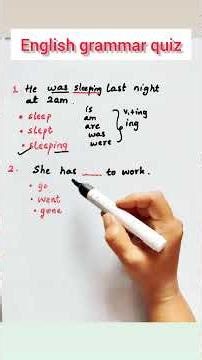 English grammar quiz
1. He was sleeping last night
at 2am.
• sleep
• slept
• sleeping
is
am
are
was
were
v1+ing
ing
2. She has ____ to work.
• go
• went
• gone